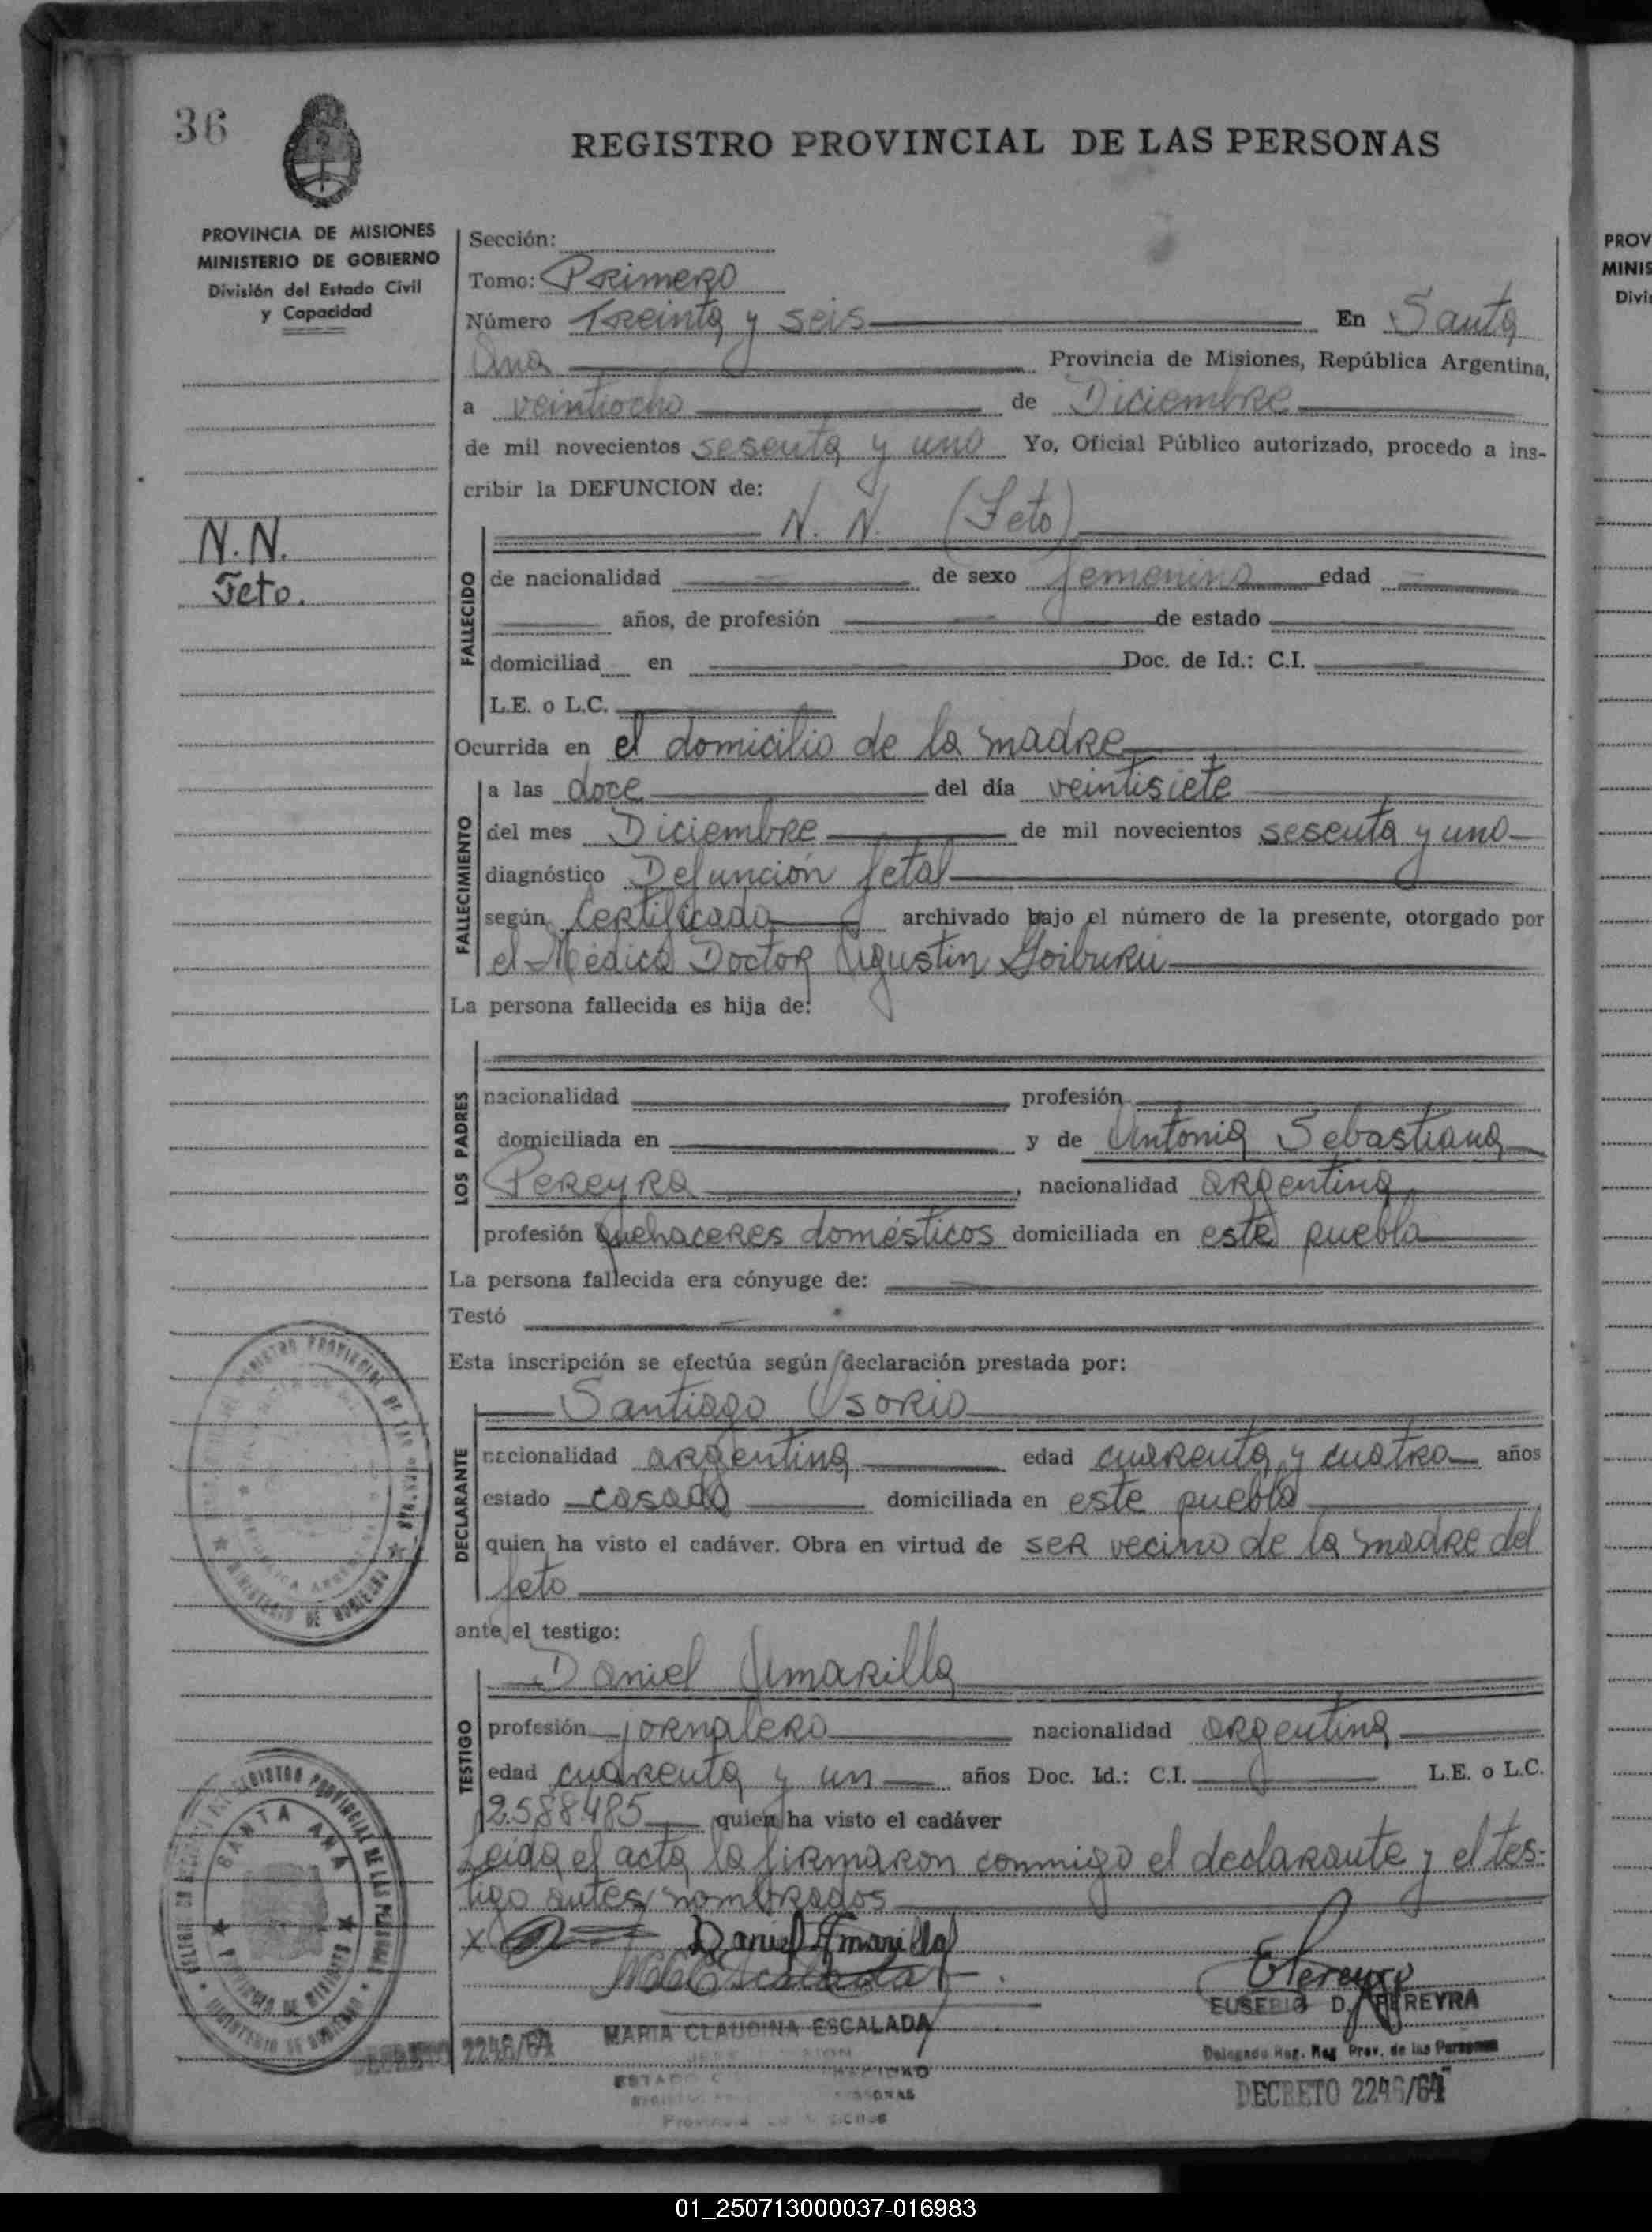 36
REGISTRO PROVINCIAL DE LAS PERSONAS
PROVINCIA DE MISIONES
MINISTERIO DE GOBIERNO
División del Estado Civil
y Capacidad
N.N.
Feto.
Sección:
Tomo: Primero
Número Treinta y seis En Santa
Ana Provincia de Misiones, República Argentina,
a veintiocho de Diciembre
de mil novecientos sesenta y uno Yo, Oficial Público autorizado, procedo a ins-
cribir la DEFUNCION de:
N. N. (Feto)
FALLECIDO
de nacionalidad de sexo femenino edad
años, de profesión de estado
domiciliad en Doc. de Id.: C.I.
L.E. o L.C.
Ocurrida en el domicilio de la madre
FALLECIMIENTO
a las doce del día veintisiete
del mes Diciembre de mil novecientos sesenta y uno
diagnóstico Defunción fetal
según Certificado archivado bajo el número de la presente, otorgado por
el Médico Doctor Agustin Goiburú
La persona fallecida es hija de:
LOS PADRES
nacionalidad profesión
domiciliada en y de Antonia Sebastiana
Pereyra, nacionalidad argentina
profesión quehaceres domésticos domiciliada en este pueblo
La persona fallecida era cónyuge de:
Testó
Esta inscripción se efectúa según declaración prestada por:
Santiago Osorio
DECLARANTE
nacionalidad argentina edad cuarenta y cuatro años
estado casado domiciliada en este pueblo
quien ha visto el cadáver. Obra en virtud de ser vecino de la madre del
feto
ante el testigo:
Daniel Amarilla
TESTIGO
profesión jornalero nacionalidad argentina
edad cuarenta y un años Doc. Id.: C.I. L.E. o L.C.
2.588485 quien ha visto el cadáver
Leida el acta, la firmaron conmigo el declarante y el tes-
tigo antes nombrados
X Daniel Amarilla
EPereyra
EUSEBIO D. PEREYRA
MARIA CLAUDINA ESCALADA
Delegado Reg. Prov. de las Personas
DECRETO 2246/64
DECRETO 2246/64
REGISTRO PROVINCIAL DE LAS PERSONAS
MINISTERIO DE GOBIERNO
SANTA ANA
PROVINCIA DE MISIONES
PROV
MINIS
Divi
01_250713000037-016983